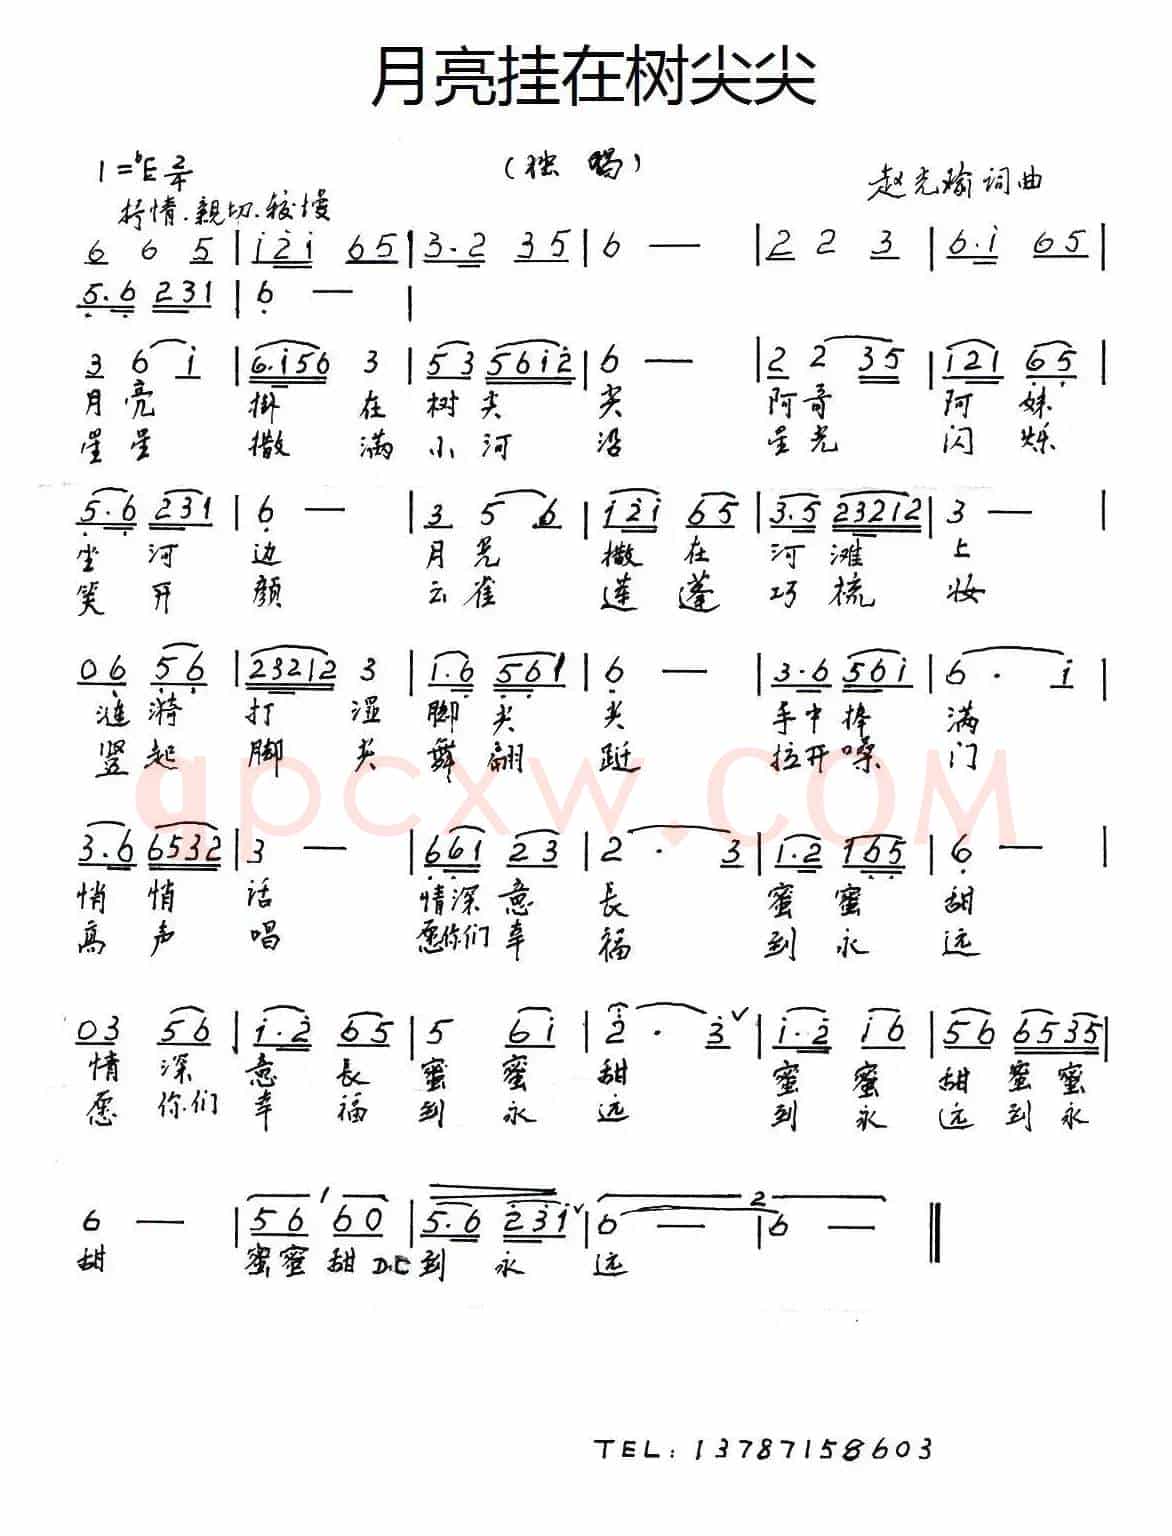 月亮挂在树尖尖
1=♭E 2/4
(独唱)
赵光瑜词曲
抒情.亲切.较慢
6 6 5 | i 2 i 6 5 | 3·2 3 5 | 6 — | 2 2 3 | 6·i 6 5 |
5·6 2 3 1 | 6 — |
3 6 i | 6·i 5 6 3 | 5 3 5 6 i 2 | 6 — | 2 2 3 5 | i 2 i 6 5 |
月亮 掛在 树尖 尖 阿哥 阿妹
星星 撒满 小河 沿 星光 闪烁
5·6 2 3 1 | 6 — | 3 5 6 | i 2 i 6 5 | 3·5 2 3 2 1 2 | 3 — |
坐河 边 月光 撒在 河滩 上
笑开 颜 云雀 莲蓬 巧梳 妆
0 6 5 6 | 2 3 2 1 2 3 | 1·6 5 6 1 | 6 — | 3·6 5 6 i | 6 · i |
涟漪 打湿 脚尖 尖 手中捧 满
竖起 脚尖 舞翩 跹 拉开嗓 门
qpcxw.COM
3·6 6 5 3 2 | 3 — | 6 6 1 2 3 | 2 · 3 | 1·2 1 6 5 | 6 — |
悄悄 话 情深意 长 蜜蜜 甜
高声 唱 愿你们幸 福 到永 远
0 3 5 6 | i·2 6 5 | 5 6 i | 2 · 3 ∨ | i·2 i 6 | 5 6 6 5 3 5 |
情深 意长 蜜蜜 甜 蜜蜜 甜蜜蜜
愿你们 幸福 到永 远 到永 远到永
6 — | 1 5 6 6 0 | 5·6 2 3 i ∨ | 2 6 — | 6 — ‖
甜 蜜蜜甜 D.C 到永 远
TEL: 13787158603